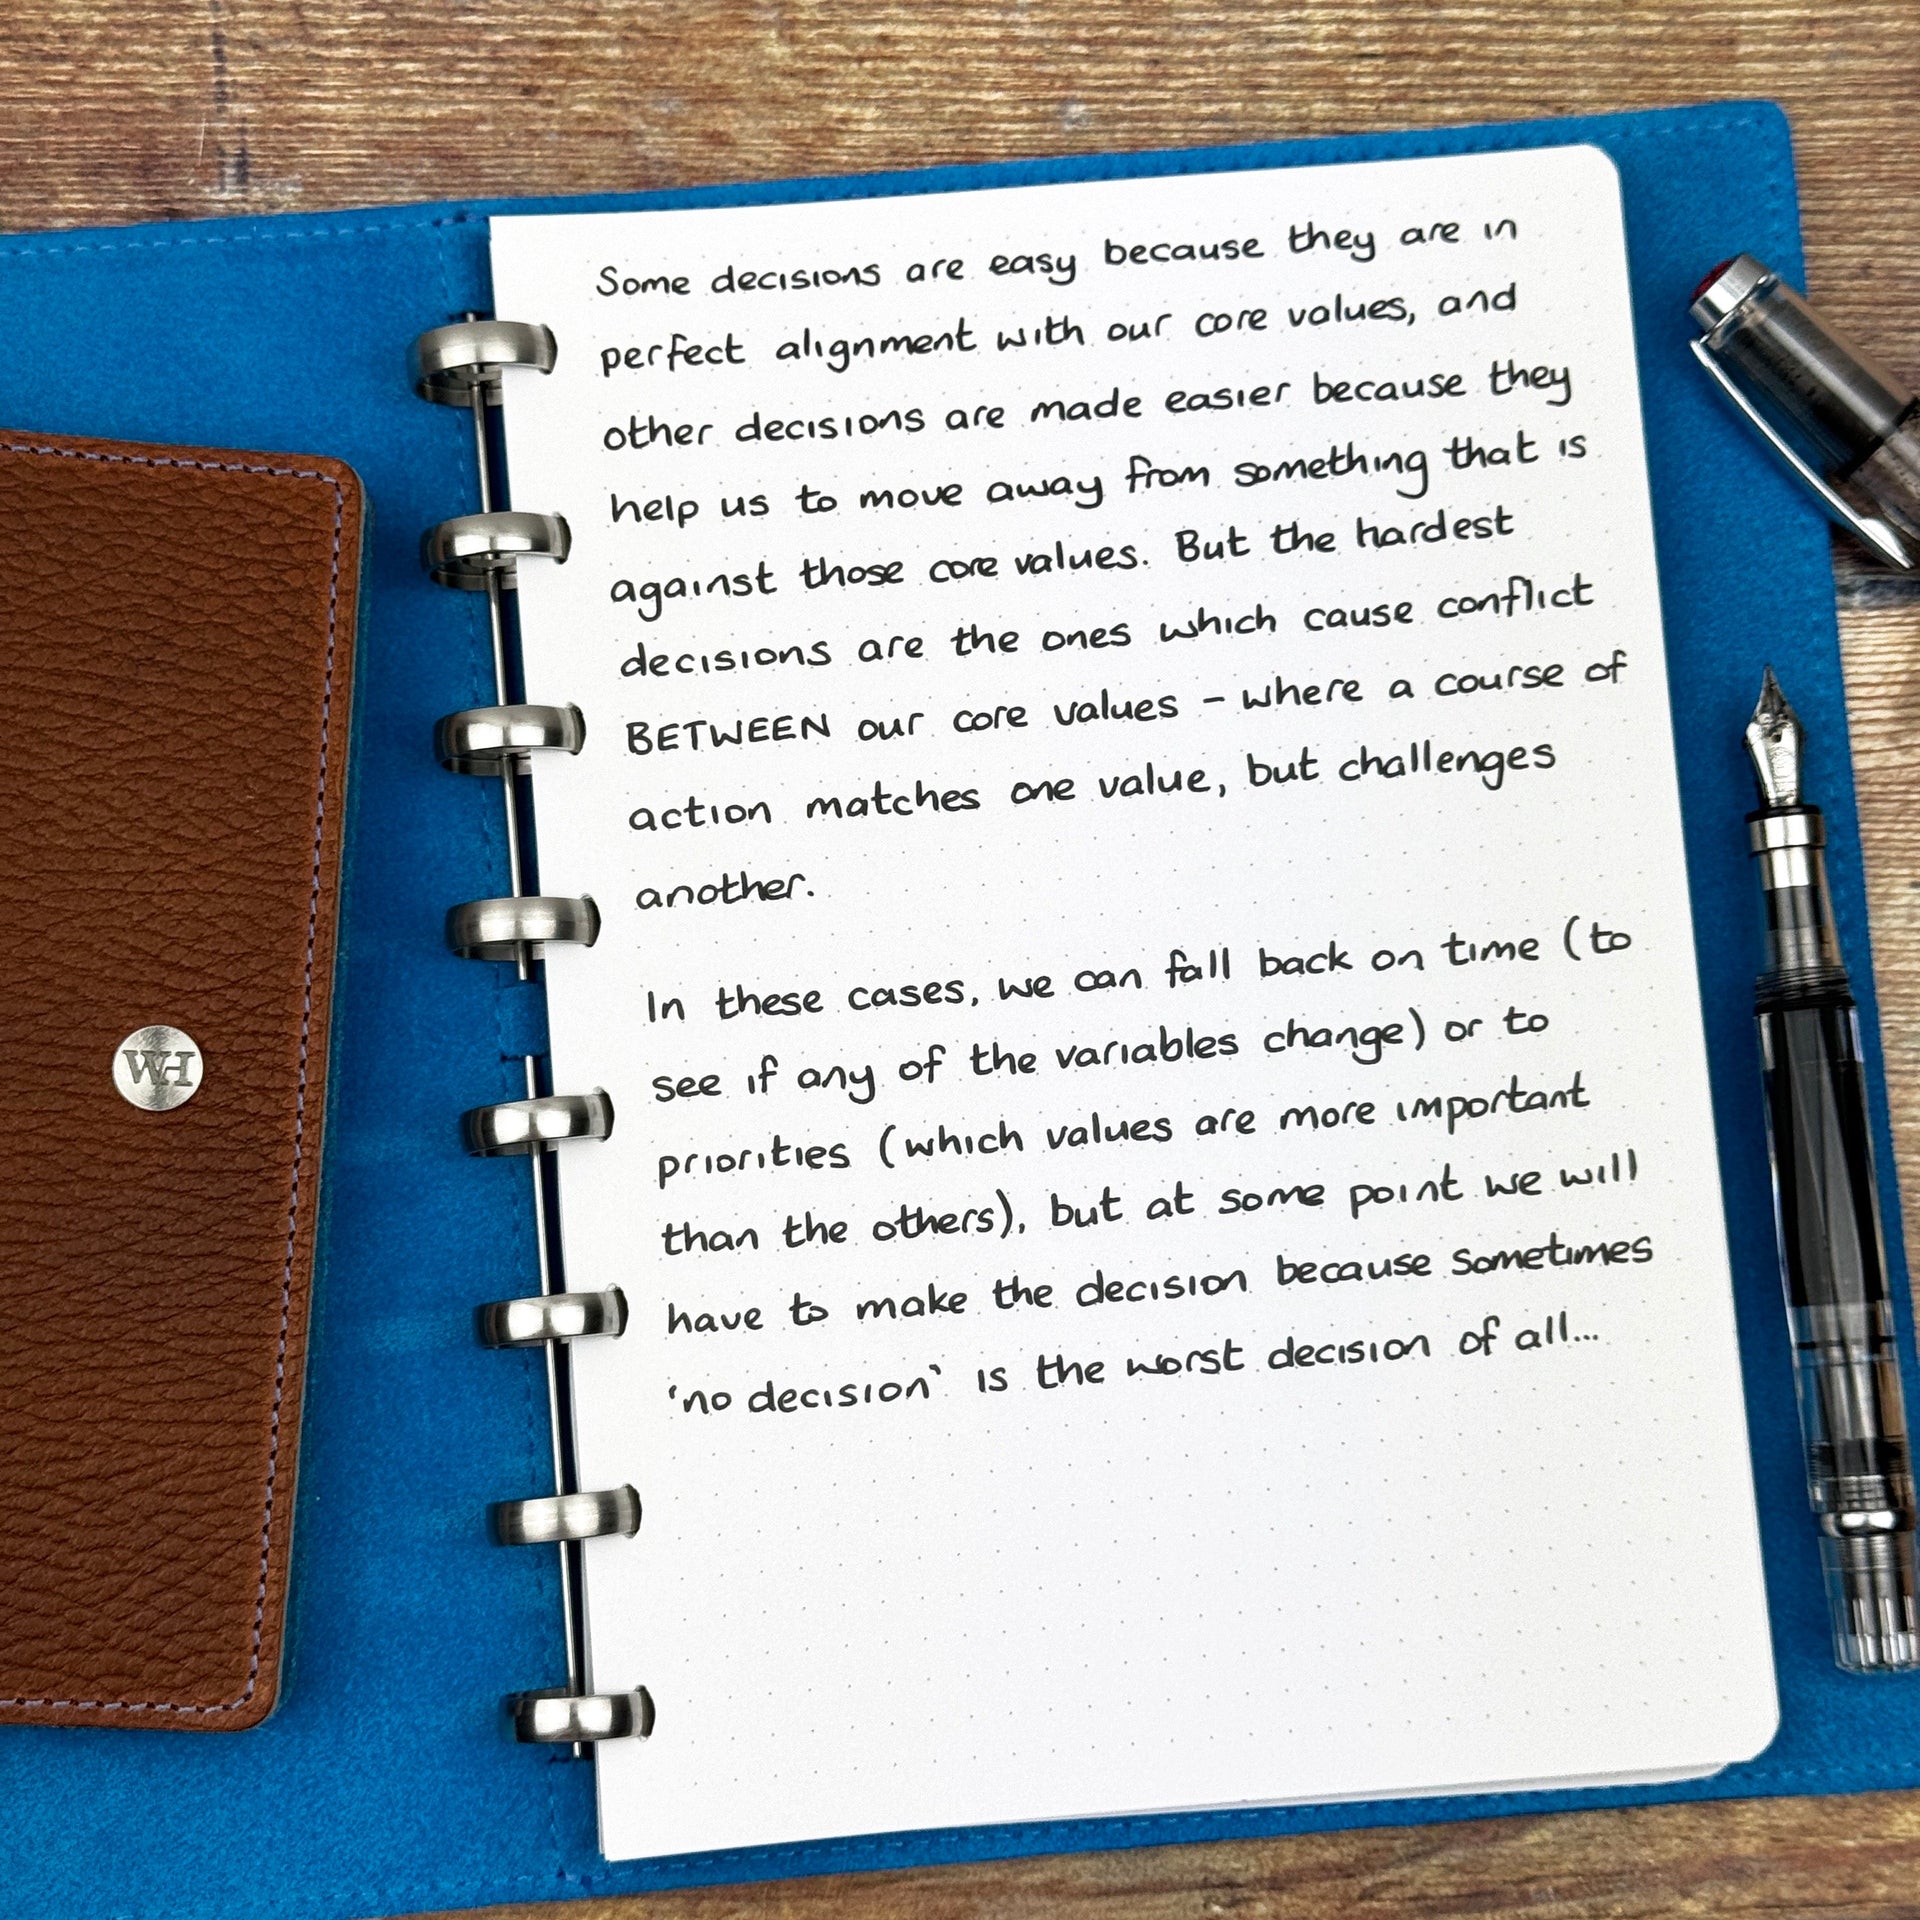 Some decisions are easy because they are in
perfect alignment with our core values, and
other decisions are made easier because they
help us to move away from something that is
against those core values. But the hardest
decisions are the ones which cause conflict
BETWEEN our core values - where a course of
action matches one value, but challenges
another.
In these cases, we can fall back on time (to
see if any of the variables change) or to
priorities (which values are more important
than the others), but at some point we will
have to make the decision because sometimes
'no decision' is the worst decision of all...
WH